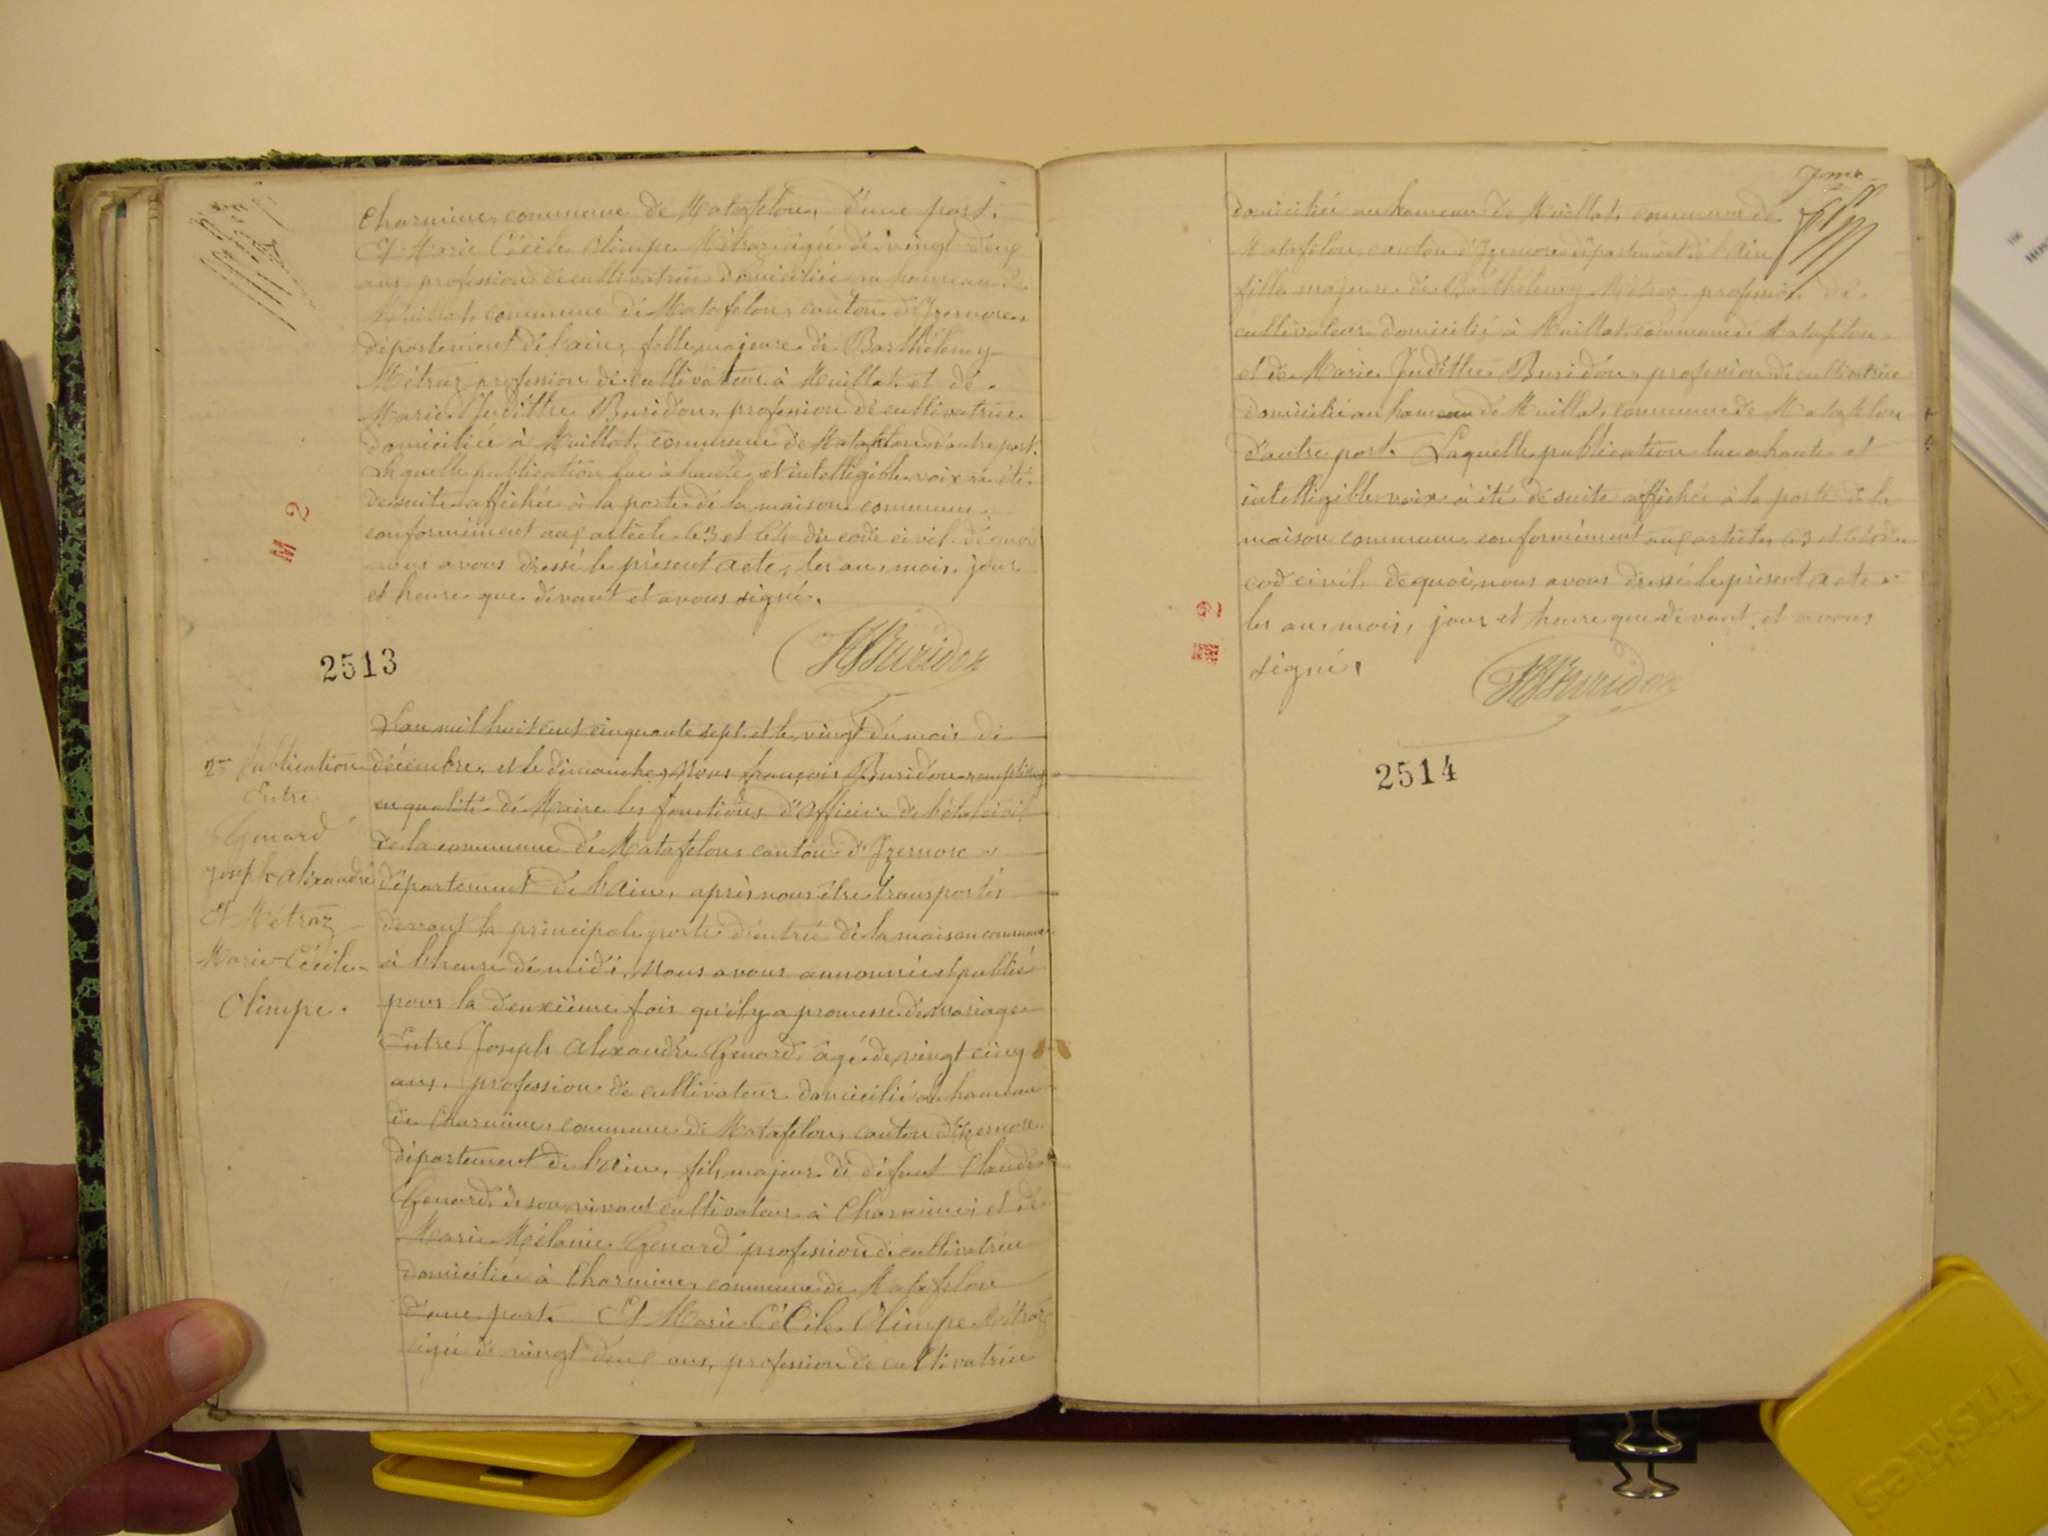 Charmine, commune de Matafelon, d'une part.
Et Marie Cécile Olimpe Métraz agée de vingt deux
ans profession de cultivatrice domiciliée au hameau de
Muillat, commune de Matafelon, canton d'Izernore,
département de l'ain, fille majeure de Barthélemy
Métraz profession de cultivateur à Muillat et de
Marie Judithe Buridon, profession de cultivatrice
domiciliée à Muillat commune de Matafelon d'autre part.
Laquelle publication lue à haute et intelligible voix a été
de suite affichée à la porte de la maison commune
conformément aux article 63 et 64 du code civil de quoi
nous avons dressé le présent acte, les an, mois, jour
et heure que devant et avons signé.
Buridon
M 2
2513
2me Publication
Entre
Genard
Joseph Alexandre
Et Métraz
Marie Cécile
Olimpe.
L'an mil huit cent cinquante sept et le vingt du mois de
décembre, et le dimanche, Nous françois Buridon remplissant
en qualité de Maire les fonctions d'officier de l'état civil
de la commune de Matafelon, canton d'Izernore
département de l'Ain, après nous être transportés
devant la principale porte d'entrée de la maison commune
à l'heure de midi, Nous avons annoncé et publié
pour la deuxième fois qu'il y a promesse de mariage
Entre Joseph Alexandre Genard âgé de vingt cinq
ans, profession de cultivateur domicilié au hameau
de Charmine, commune de Matafelon, canton d'Izernore
département de l'Ain, fils majeur de défunt Claude
Genard de son vivant cultivateur à Charmine, et de
Marie Mélanie Genard profession de cultivatrice
domiciliée à Charmine, commune de Matafelon
d'une part. Et Marie Cécile Olimpe Métraz
agée de vingt deux ans, profession de cultivatrice
domiciliée au hameau de Muillat, commune de
Matafelon, canton d'Izernore département de l'Ain
fille majeure de Barthélemy Métraz profession de
cultivateur domicilié à Muillat, commune de Matafelon
et de Marie Judithe Buridon, profession de cultivatrice
domiciliée au hameau de Muillat, commune de Matafelon
d'autre part. Laquelle publication lue a haute et
intelligible voix a été de suite affichée à la porte de la
maison commune conformément aux article 63 et 64 du
code civil de quoi, nous avons dressé le présent acte
les an, mois, jour et heure que devant, et avons
signé.
Buridon
2
2514
Friskies